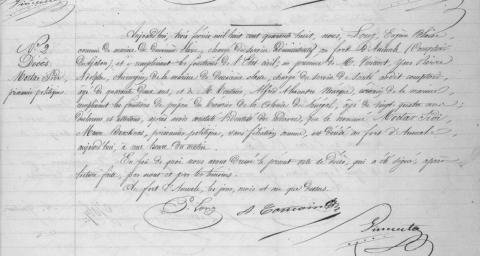 N° 2
Décès
Moctar Sidi
prisonnier politique
Aujourd'hui, trois février mil huit cent quarante huit, nous, Long, Eugène
commis de marine de deuxième classe, chargé du service administratif au fort d'Aumale (Comptoir
et remplissant les fonctions de l'Etat civil, en présence de M. Vincent, Jean Pierre
Adolphe, Chirurgien de la marine de deuxième classe, chargé du service de santé audit comptoir,
âgé de trente deux ans, et de M. Alfred Alexandre écrivain de la marine
remplissant les fonctions de préposé du trésorier de la Colonie du Sénégal, âgé de vingt quatre ans;
Déclarons et attestons, après nous être du décès, que le nommé Moctar Sidi
prisonnier politique, sans filiation connue, est décédé au fort d'Aumale
aujourd'hui, à une heure du matin.
En foi de quoi nous avons dressé le présent acte de décès, qui a été signé, après
lecture faite, par nous et par les témoins.
Au fort d'Aumale, les jour, mois et an que dessus.
Long